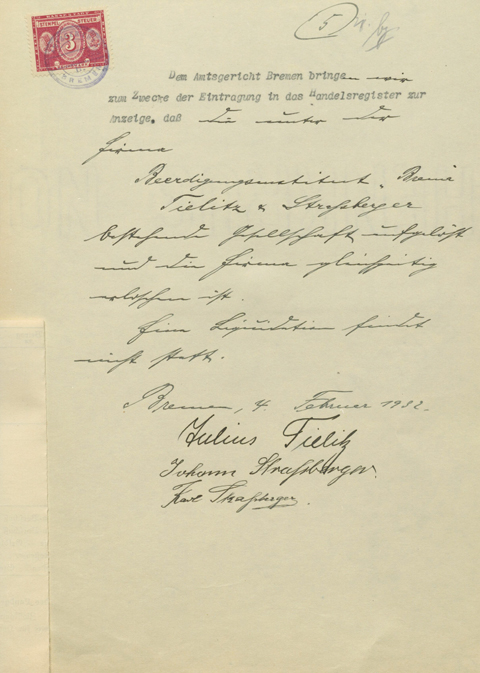 STEMPEL
STEUER
3
5
Dem Amtsgericht Bremen bringen wir
zum Zwecke der Eintragung in das Handelsregister zur
Anzeige, daß die unter der
Firma
Beerdigungsinstitut „Brema"
Tielitz & Straßberger
bestehende Gesellschaft aufgelöst
und die Firma gleichzeitig
erloschen ist.
Eine Liquidation findet
nicht statt.
Bremen, 4. Februar 1932.
Julius Tielitz
Johann Straßberger.
Karl Straßberger.